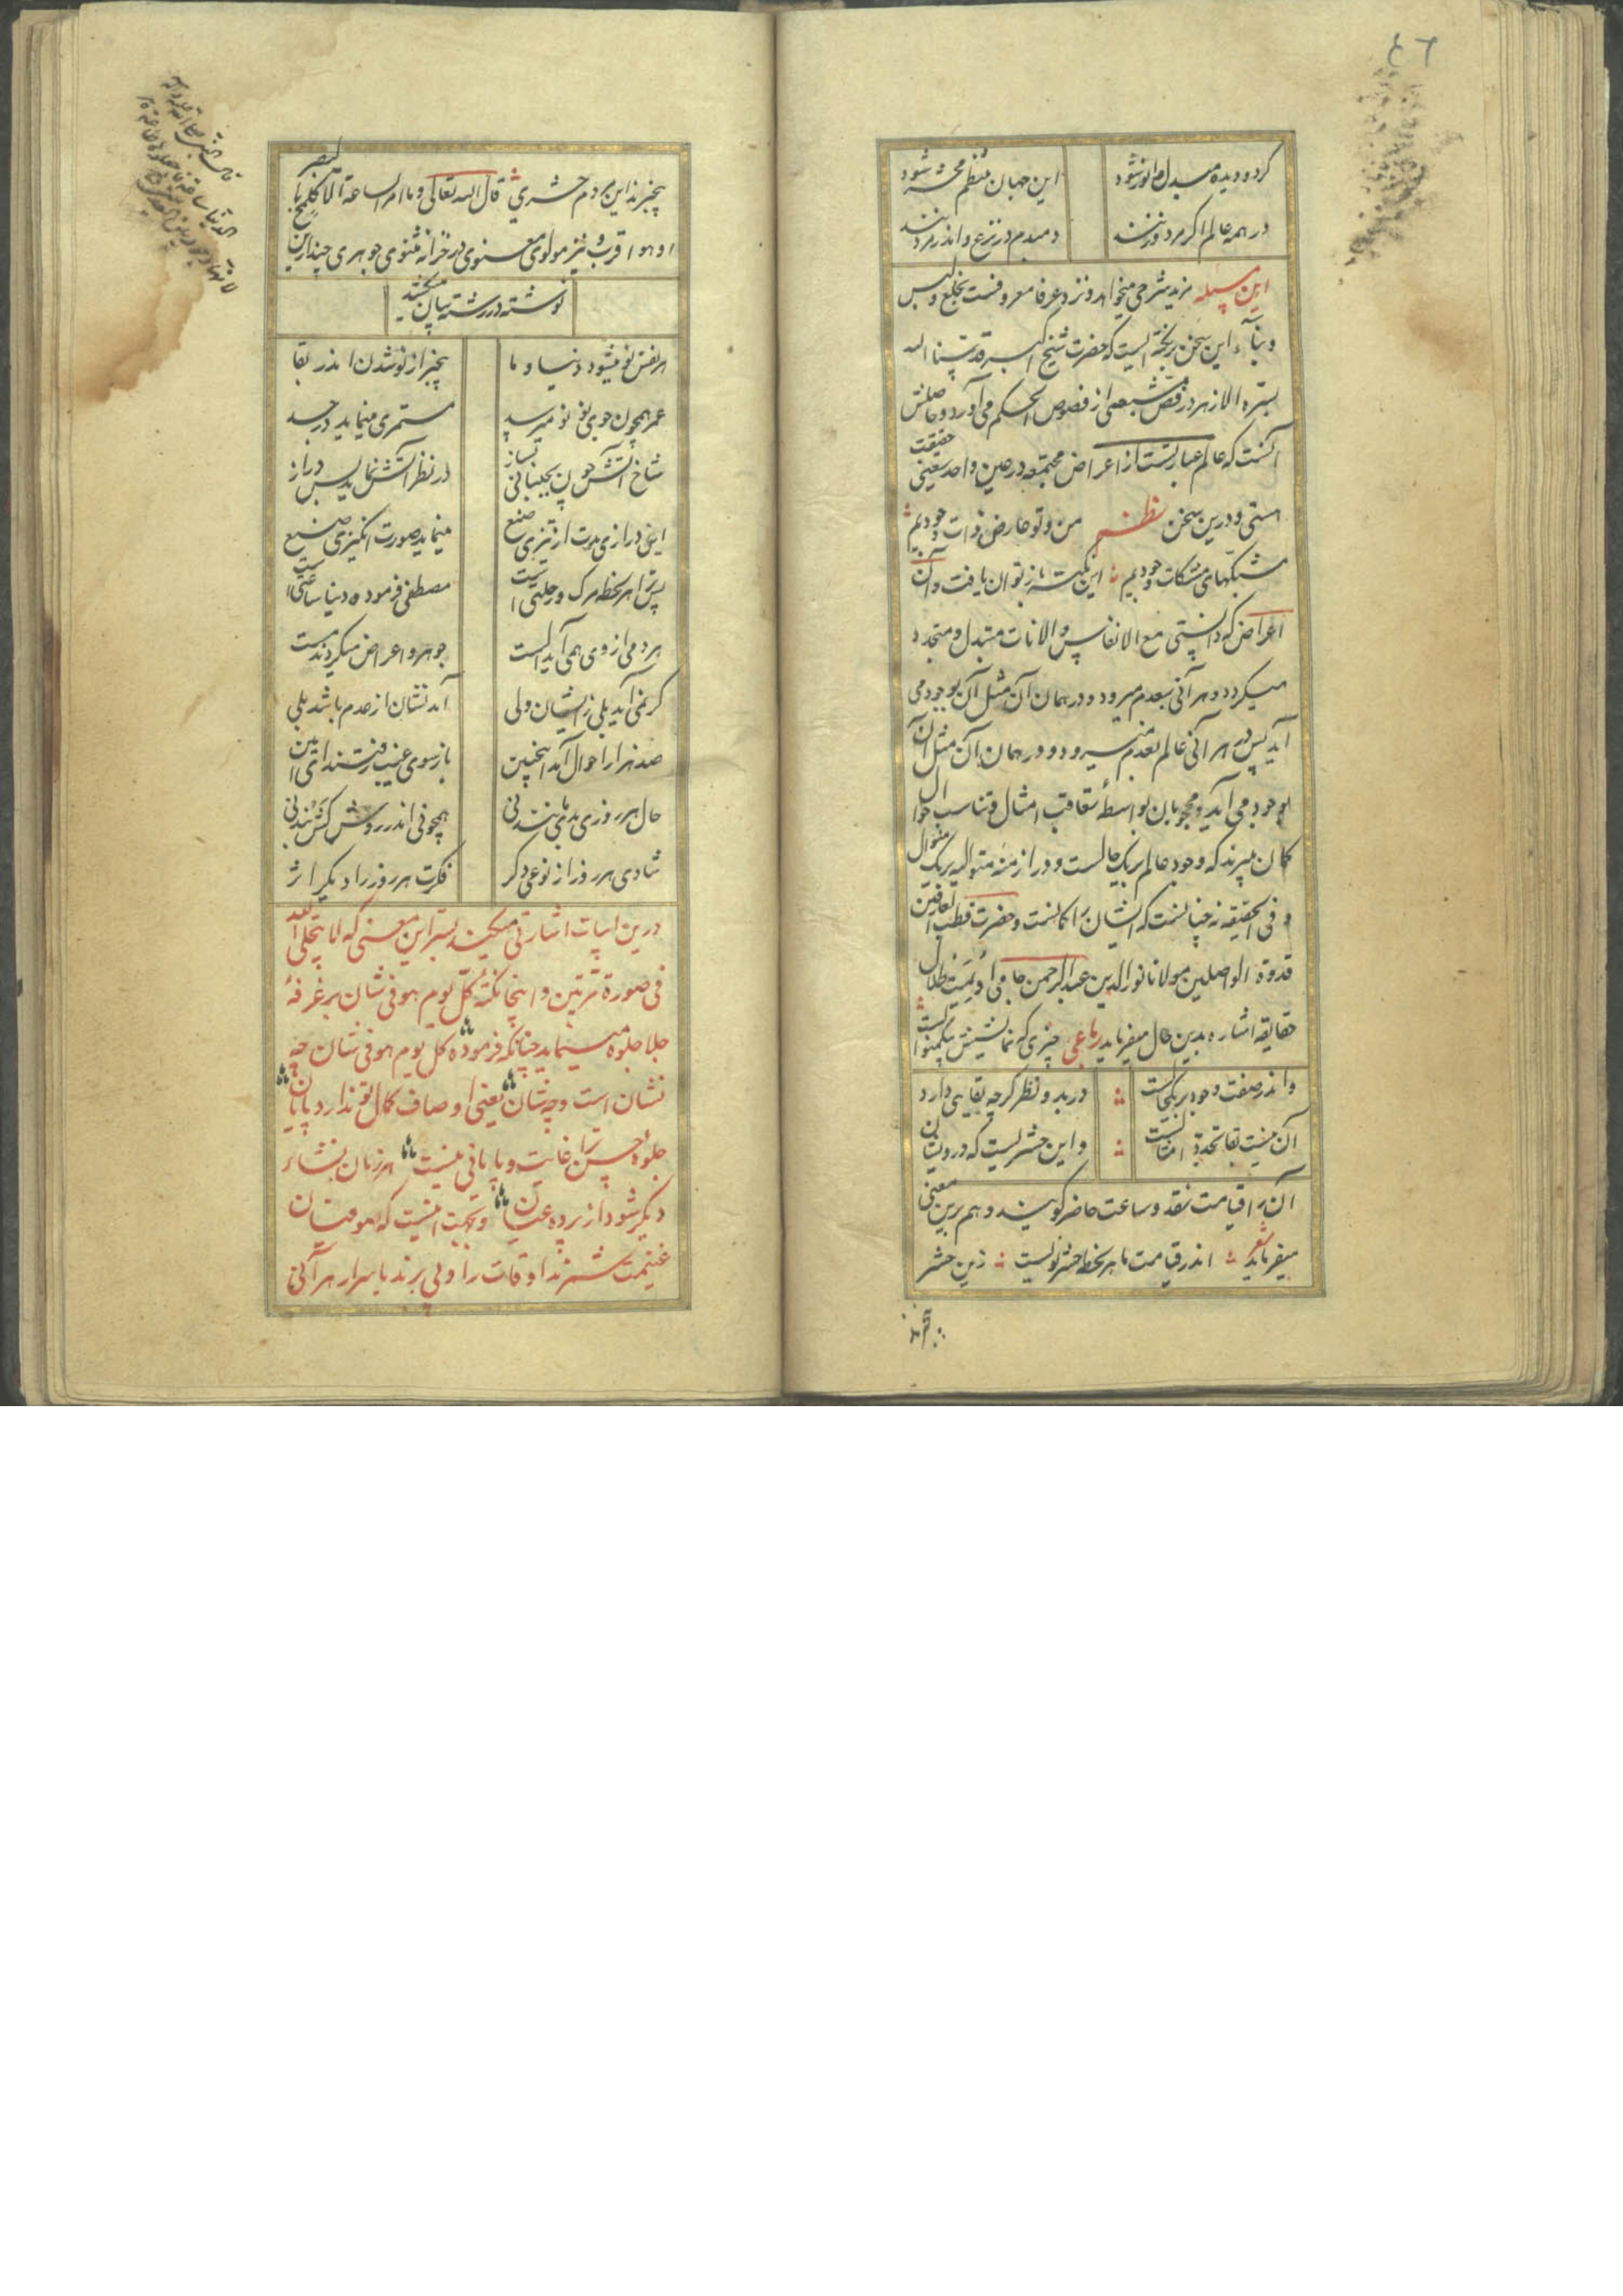 ٤٦
گردد و دیده مبدل و انور شود این جهان منتظم محشر شود
در همه عالم اگر مرد و زنند دمبدم در نزع و اندر مردنند
این مسئله مزید شرحی میخواهد و نزد عرفا معروفست بخلع و لبس
و بنآء این سخن بر نکته ایست که حضرت شیخ اکبر قدسنا الله
بسره الازهر در فص شعیبی از فصوص الحکم می آورد و حاصلش
آنست که عالم عبارتست از اعراض مجتمعه در عین واحد یعنی حقیقت
هستی و درین سخن نظم من و تو عارض ذات وجودیم
مشبکهای مشکات وجودیم این نکته باز توان یافت و آن
اعراض که دانستی مع الانفاس والانات متبدل و متجدد
میگردد و هر آنی بعدم میرود و در همان آن مثل آن بوجود می
آید پس در هر آنی عالم بعدم میرود و در همان آن مثل آن
بوجود می آید و محجوبان بواسطهٔ تعاقب امثال و تناسب احوال
گمان میبرند که وجود عالم بر یک حالست و در ازمنهٔ متوالیه بر یک منوال
و فی الحقیقه نه چنانست که ایشان را گمانست و حضرت قطب العارفین
قدوة الواصلین مولانا نور الدین عبد الرحمن جامی ادیمت ظلال
حقایقه اشاره بدین حال میفرماید رباعی چیزی که نمایشش بیک منوالست
واندر صفت وجود بر یکحالست در بدو نظر گرچه بقایی دارد
آن نیست بقا تجدد امثالست و این حشریست که درویشان
آن را قیامت نقد و ساعت حاضر گویند و هم برین معنی
میفرماید شعر اندر قیامت ما هر لحظه حشر نویست زین حشر
بیخبرند
بیخبرند این مردم حشری قال الله تعالی و ما امر الساعة الا کلمح البصر
او هو اقرب و نیز مولوی معنوی در خزانه مثنوی جوهری چند ازین
نوشته در رشته بیان میکشد
هر نفس نو میشود دنیا و ما بیخبر از نو شدن اندر بقا
عمر همچون جوی نو نو میرسد مستمری مینماید در جسد
شاخ آتش چون بجنبانی بساز در نظر آتش نماید بس دراز
این درازی مدت از تیزی صنع مینماید صورت انگیزی صنع
پس ترا هر لحظه مرگ و رجعتیست مصطفی فرموده دنیا ساعتیست
هر دمی از وی همی آید الست جوهر و اعراض میگردند مست
گر نمی آید بلی زایشان ولی آمدنشان از عدم باشد بلی
صد هزار احوال آمد اینچنین باز سوی غیب رفتند ای امین
حال هر روزی بدی مانند نی همچو جوی اندر روش کش بند نی
شادی هر روز از نوعی دگر فکرت هر روز را دیگر اثر
درین ابیات اشارتی میکند بسر این معنی که لا یتجلی الله
فی صورة مرتین و اینجا نکتهٔ کل یوم هو فی شان بر غرفهٔ
جلا جلوه مینماید چنانکه فرموده کل یوم هو فی شان چه
نشان است و چه شان یعنی اوصاف کمال تو ندارد پایان
جلوه حسن ترا غایت و پایانی نیست هر زمان بشان
دیگر شود از پرده عیان و بجهت اینست که موقنان
غنیمت شمرند اوقات را و پی برند باسرار هر آنی